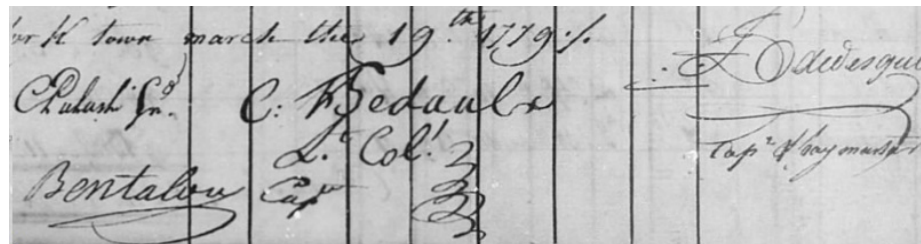 york town march the 19th. 1779 ./.
CPulaski Gnl. C: Bedaulx J. Bedesqui
Lt. Col!
Capt. & Paymaster
Bentalou Capt